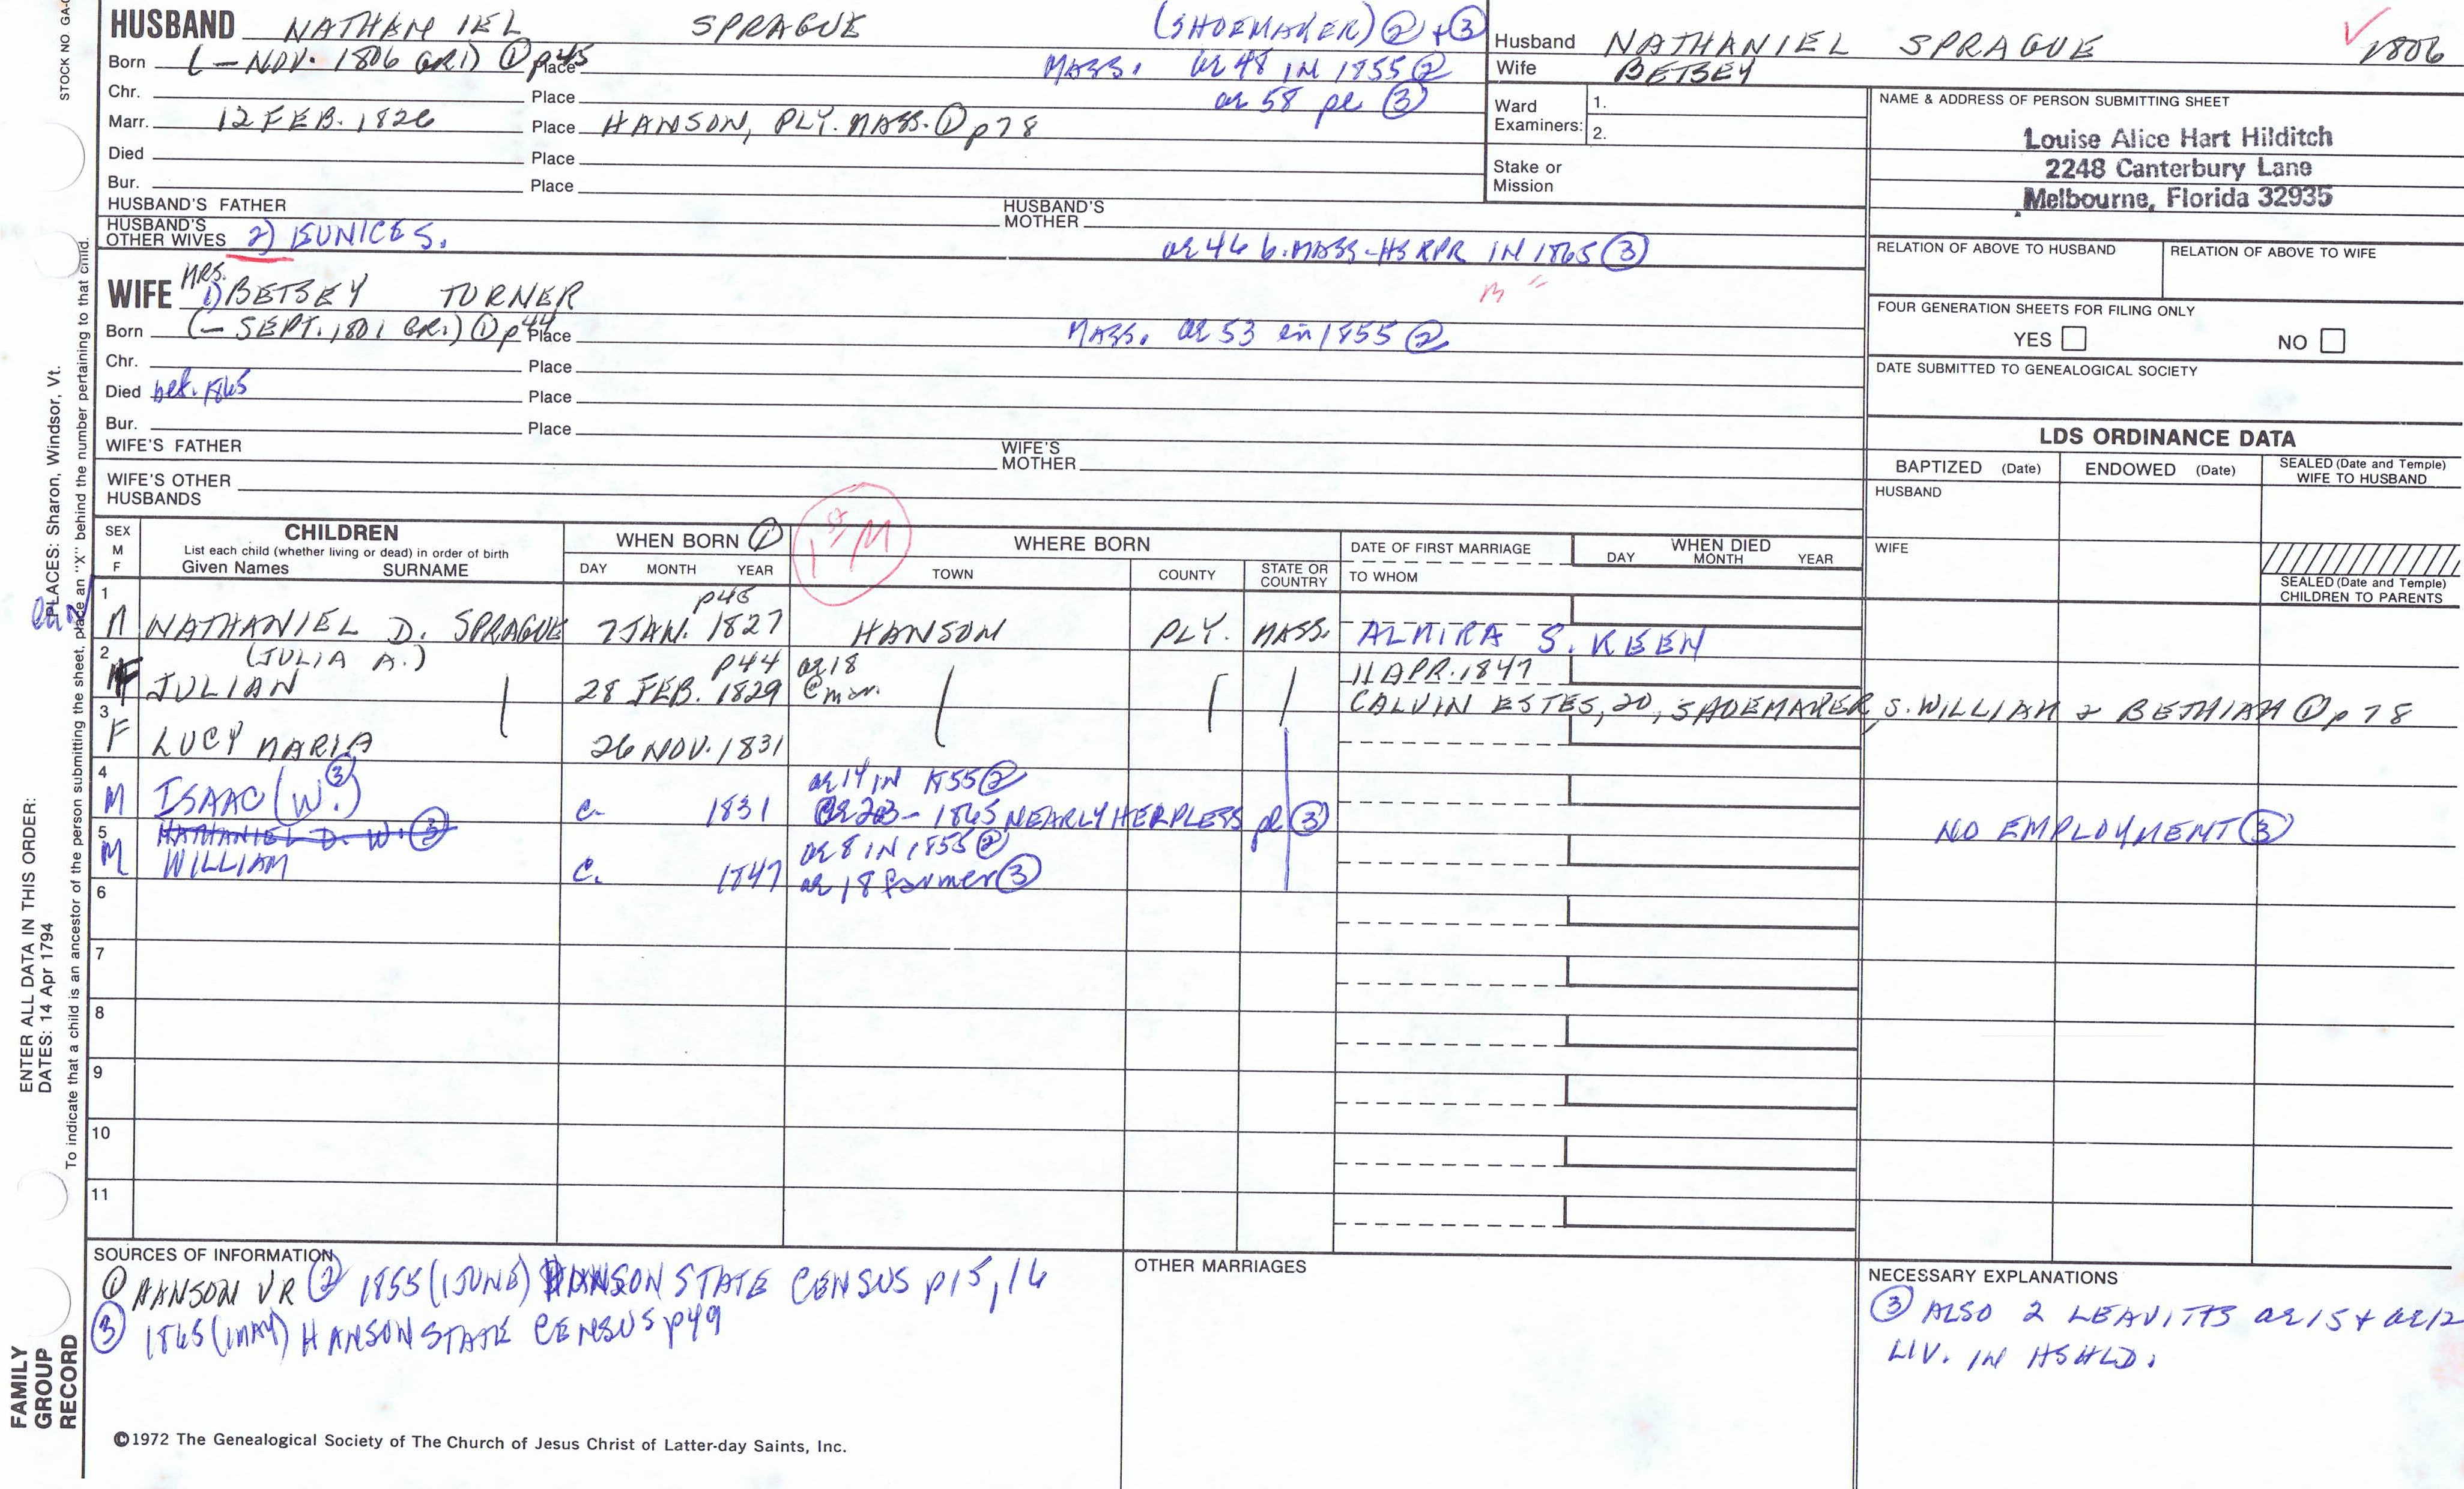 HUSBAND NATHANIEL SPRAGUE (SHOEMAKER) ② + ③
Born (— NOV. 1806 GR1) ① p45 Place MASS. ae 48 IN 1855 ②
Chr. Place ae 58 pl ③
Marr. 12 FEB. 1826 Place HANSON, PLY. MASS. ① p78
Died Place
Bur. Place
HUSBAND'S FATHER HUSBAND'S MOTHER
HUSBAND'S OTHER WIVES 2) EUNICE S. ae 46 b. MASS-HSKPR IN 1865 ③
MRS.
WIFE 1) BETSEY TURNER
Born (— SEPT. 1801 GR1) ① p44 Place MASS. ae 53 in 1855 ②
Chr. Place
Died bef. 1865 Place
Bur. Place
WIFE'S FATHER WIFE'S MOTHER
WIFE'S OTHER HUSBANDS
Husband NATHANIEL SPRAGUE 1806
Wife BETSEY
Ward Examiners: 1.
2.
Stake or Mission
NAME & ADDRESS OF PERSON SUBMITTING SHEET
Louise Alice Hart Hilditch
2248 Canterbury Lane
Melbourne, Florida 32935
RELATION OF ABOVE TO HUSBAND RELATION OF ABOVE TO WIFE
FOUR GENERATION SHEETS FOR FILING ONLY
YES NO
DATE SUBMITTED TO GENEALOGICAL SOCIETY
LDS ORDINANCE DATA
BAPTIZED (Date) ENDOWED (Date) SEALED (Date and Temple) WIFE TO HUSBAND
HUSBAND
WIFE
SEALED (Date and Temple) CHILDREN TO PARENTS
SEX M F CHILDREN WHEN BORN ① 1st M WHERE BORN DATE OF FIRST MARRIAGE WHEN DIED
List each child (whether living or dead) in order of birth
Given Names SURNAME DAY MONTH YEAR TOWN COUNTY STATE OR COUNTRY TO WHOM DAY MONTH YEAR
1 p45
M NATHANIEL D. SPRAGUE 7 JAN. 1827 HANSON PLY. MASS. ALMIRA S. KEEN
2 (JULIA A.) p44 ae 18 11 APR. 1847
F JULIAN 28 FEB. 1829 @ mar. CALVIN ESTES, 20, SHOEMAKER, S. WILLIAM & BETHIAH ① p78
3
F LUCY MARIA 26 NOV. 1831
4 ③ ae 14 IN 1855 ②
M ISAAC (W.) c. 1831 1865 NEARLY HELPLESS pl ③ NO EMPLOYMENT ③
5 NATHANIEL D. W. ③ ae 8 IN 1855 ②
M WILLIAM c. 1847 ae 18 farmer ③
6
7
8
9
10
11
SOURCES OF INFORMATION
① HANSON VR ② 1855 (1 JUNE) HANSON STATE CENSUS p15, 16
③ 1865 (1 MAY) HANSON STATE CENSUS p49
OTHER MARRIAGES
NECESSARY EXPLANATIONS
③ ALSO 2 LEAVITTS ae 15 + ae 12
LIV. IN HSHLD.
©1972 The Genealogical Society of The Church of Jesus Christ of Latter-day Saints, Inc.
STOCK NO GA-
PLACES: Sharon, Windsor, Vt.
To indicate that a child is an ancestor of the person submitting the sheet, place an "X" behind the number pertaining to that child.
ENTER ALL DATA IN THIS ORDER:
DATES: 14 Apr 1794
FAMILY GROUP RECORD